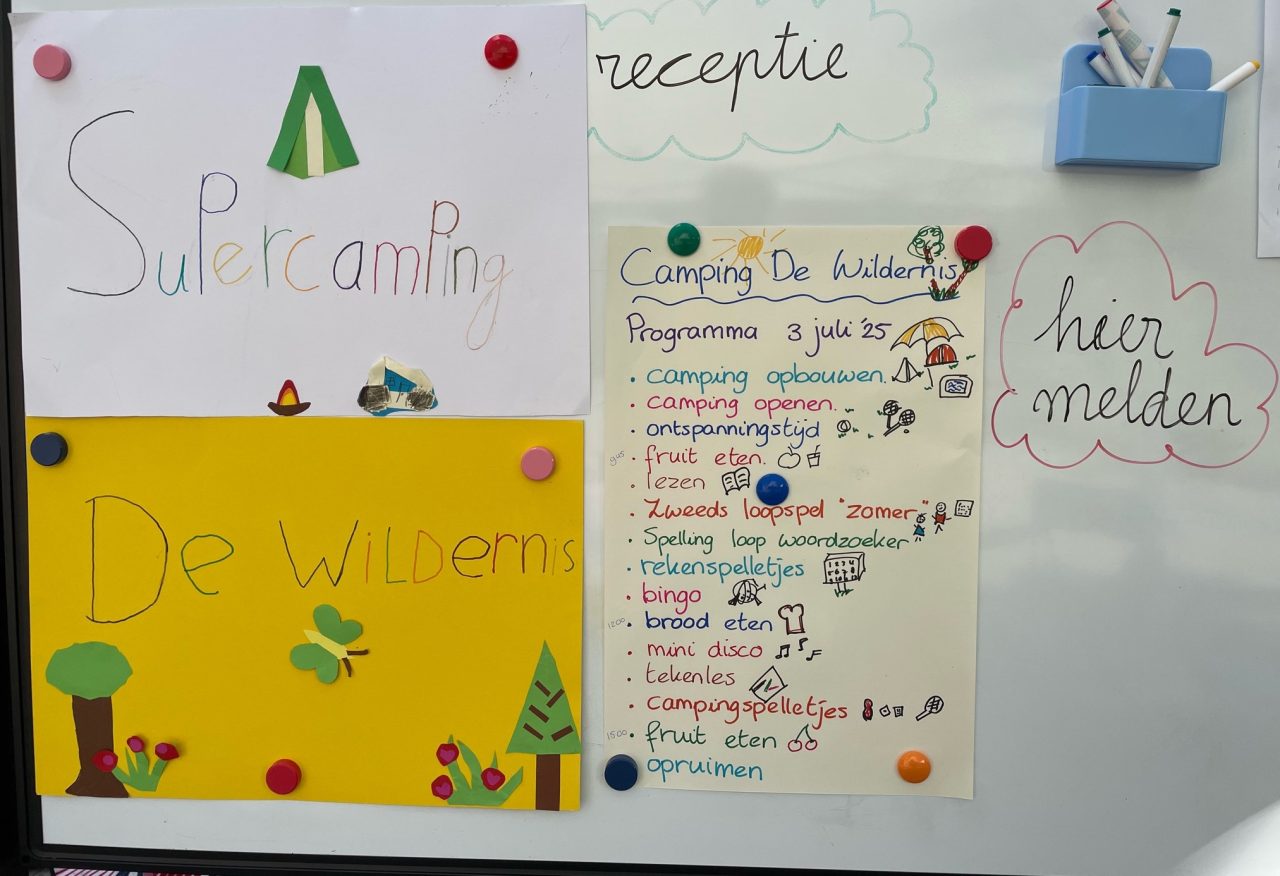 Supercamping
De Wildernis
receptie
Camping De Wildernis
Programma 3 juli '25
• camping opbouwen.
• camping openen.
• ontspanningstijd
• fruit eten.
• lezen
• Zweeds loopspel "zomer"
• Spelling loop woordzoeker
• rekenspelletjes
• bingo
1200 • brood eten
• mini disco
• tekenles
• campingspelletjes
1500 • fruit eten
• opruimen
hier
melden